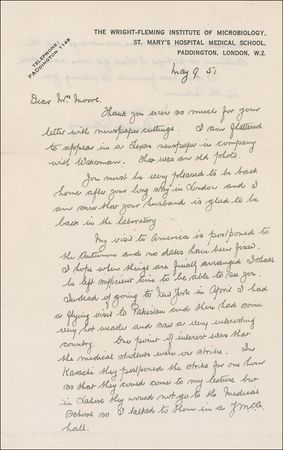 THE WRIGHT-FLEMING INSTITUTE OF MICROBIOLOGY,
ST. MARY'S HOSPITAL MEDICAL SCHOOL,
PADDINGTON, LONDON, W.2.
TELEPHONE:
PADDINGTON 1145
May 9. 51
Dear Mrs Moore.
Thank you ever so much for your
letter with newspaper cuttings. I am flattered
to appear in a Texas newspaper in company
with Waksman. That was an old photo.
You must be very pleased to be back
home after your long stay in London and I
am sure that your husband is glad to be
back in the laboratory.
My visit to America is postponed to
the Autumn and no dates have been fixed.
I hope when things are finally arranged I shall
be left sufficient time to be able to see you.
Instead of going to New York in April I had
a flying visit to Pakistan and there had some
very hot weather and saw a very interesting
country. One point of interest was that
the medical students were on strike. In
Karachi they postponed the strike for one hour
so that they could come to my lecture but
in Lahore they would not go to the Medical
School so I talked to them in a YMCA
hall.